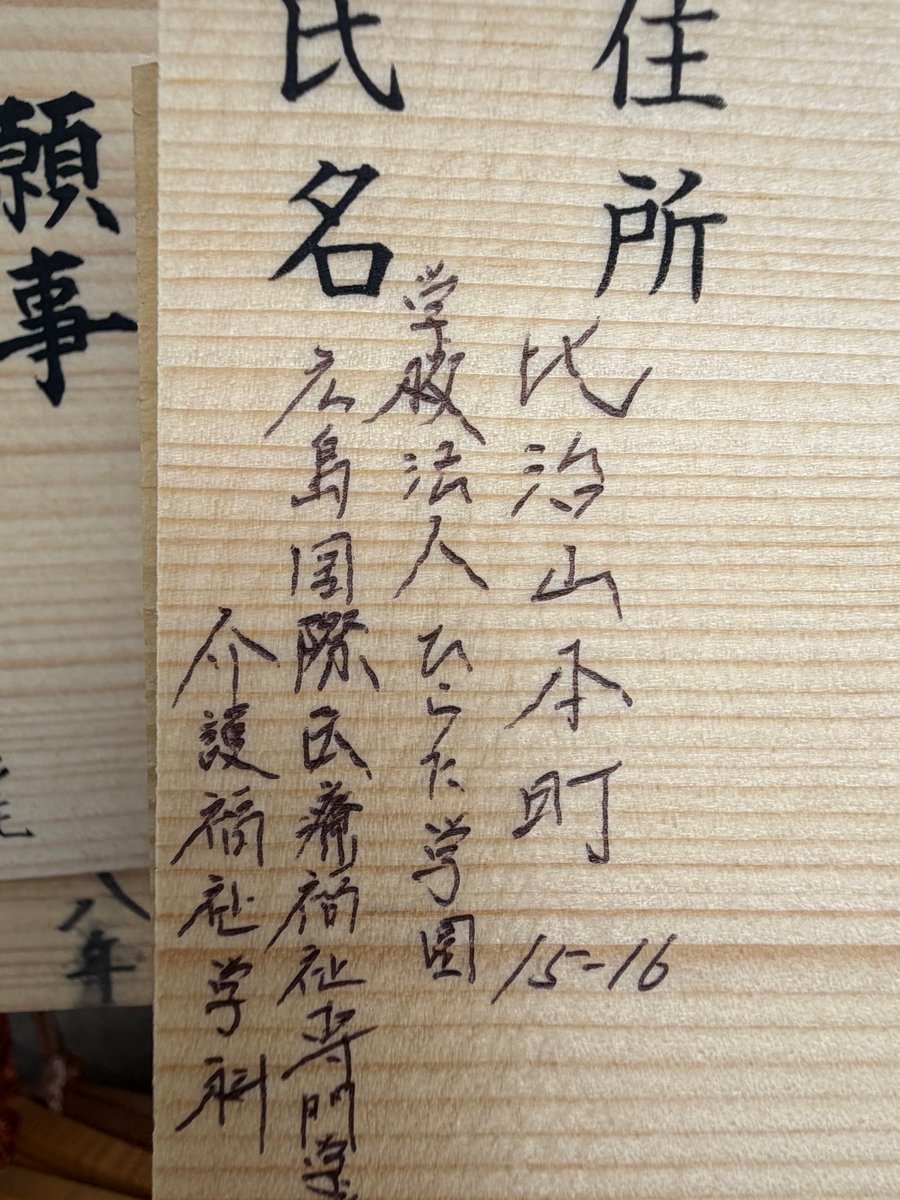 住所
比治山本町 15-16
学校法人ひらた学園
氏名
広島国際医療福祉専門学
介護福祉学科
願事
八年